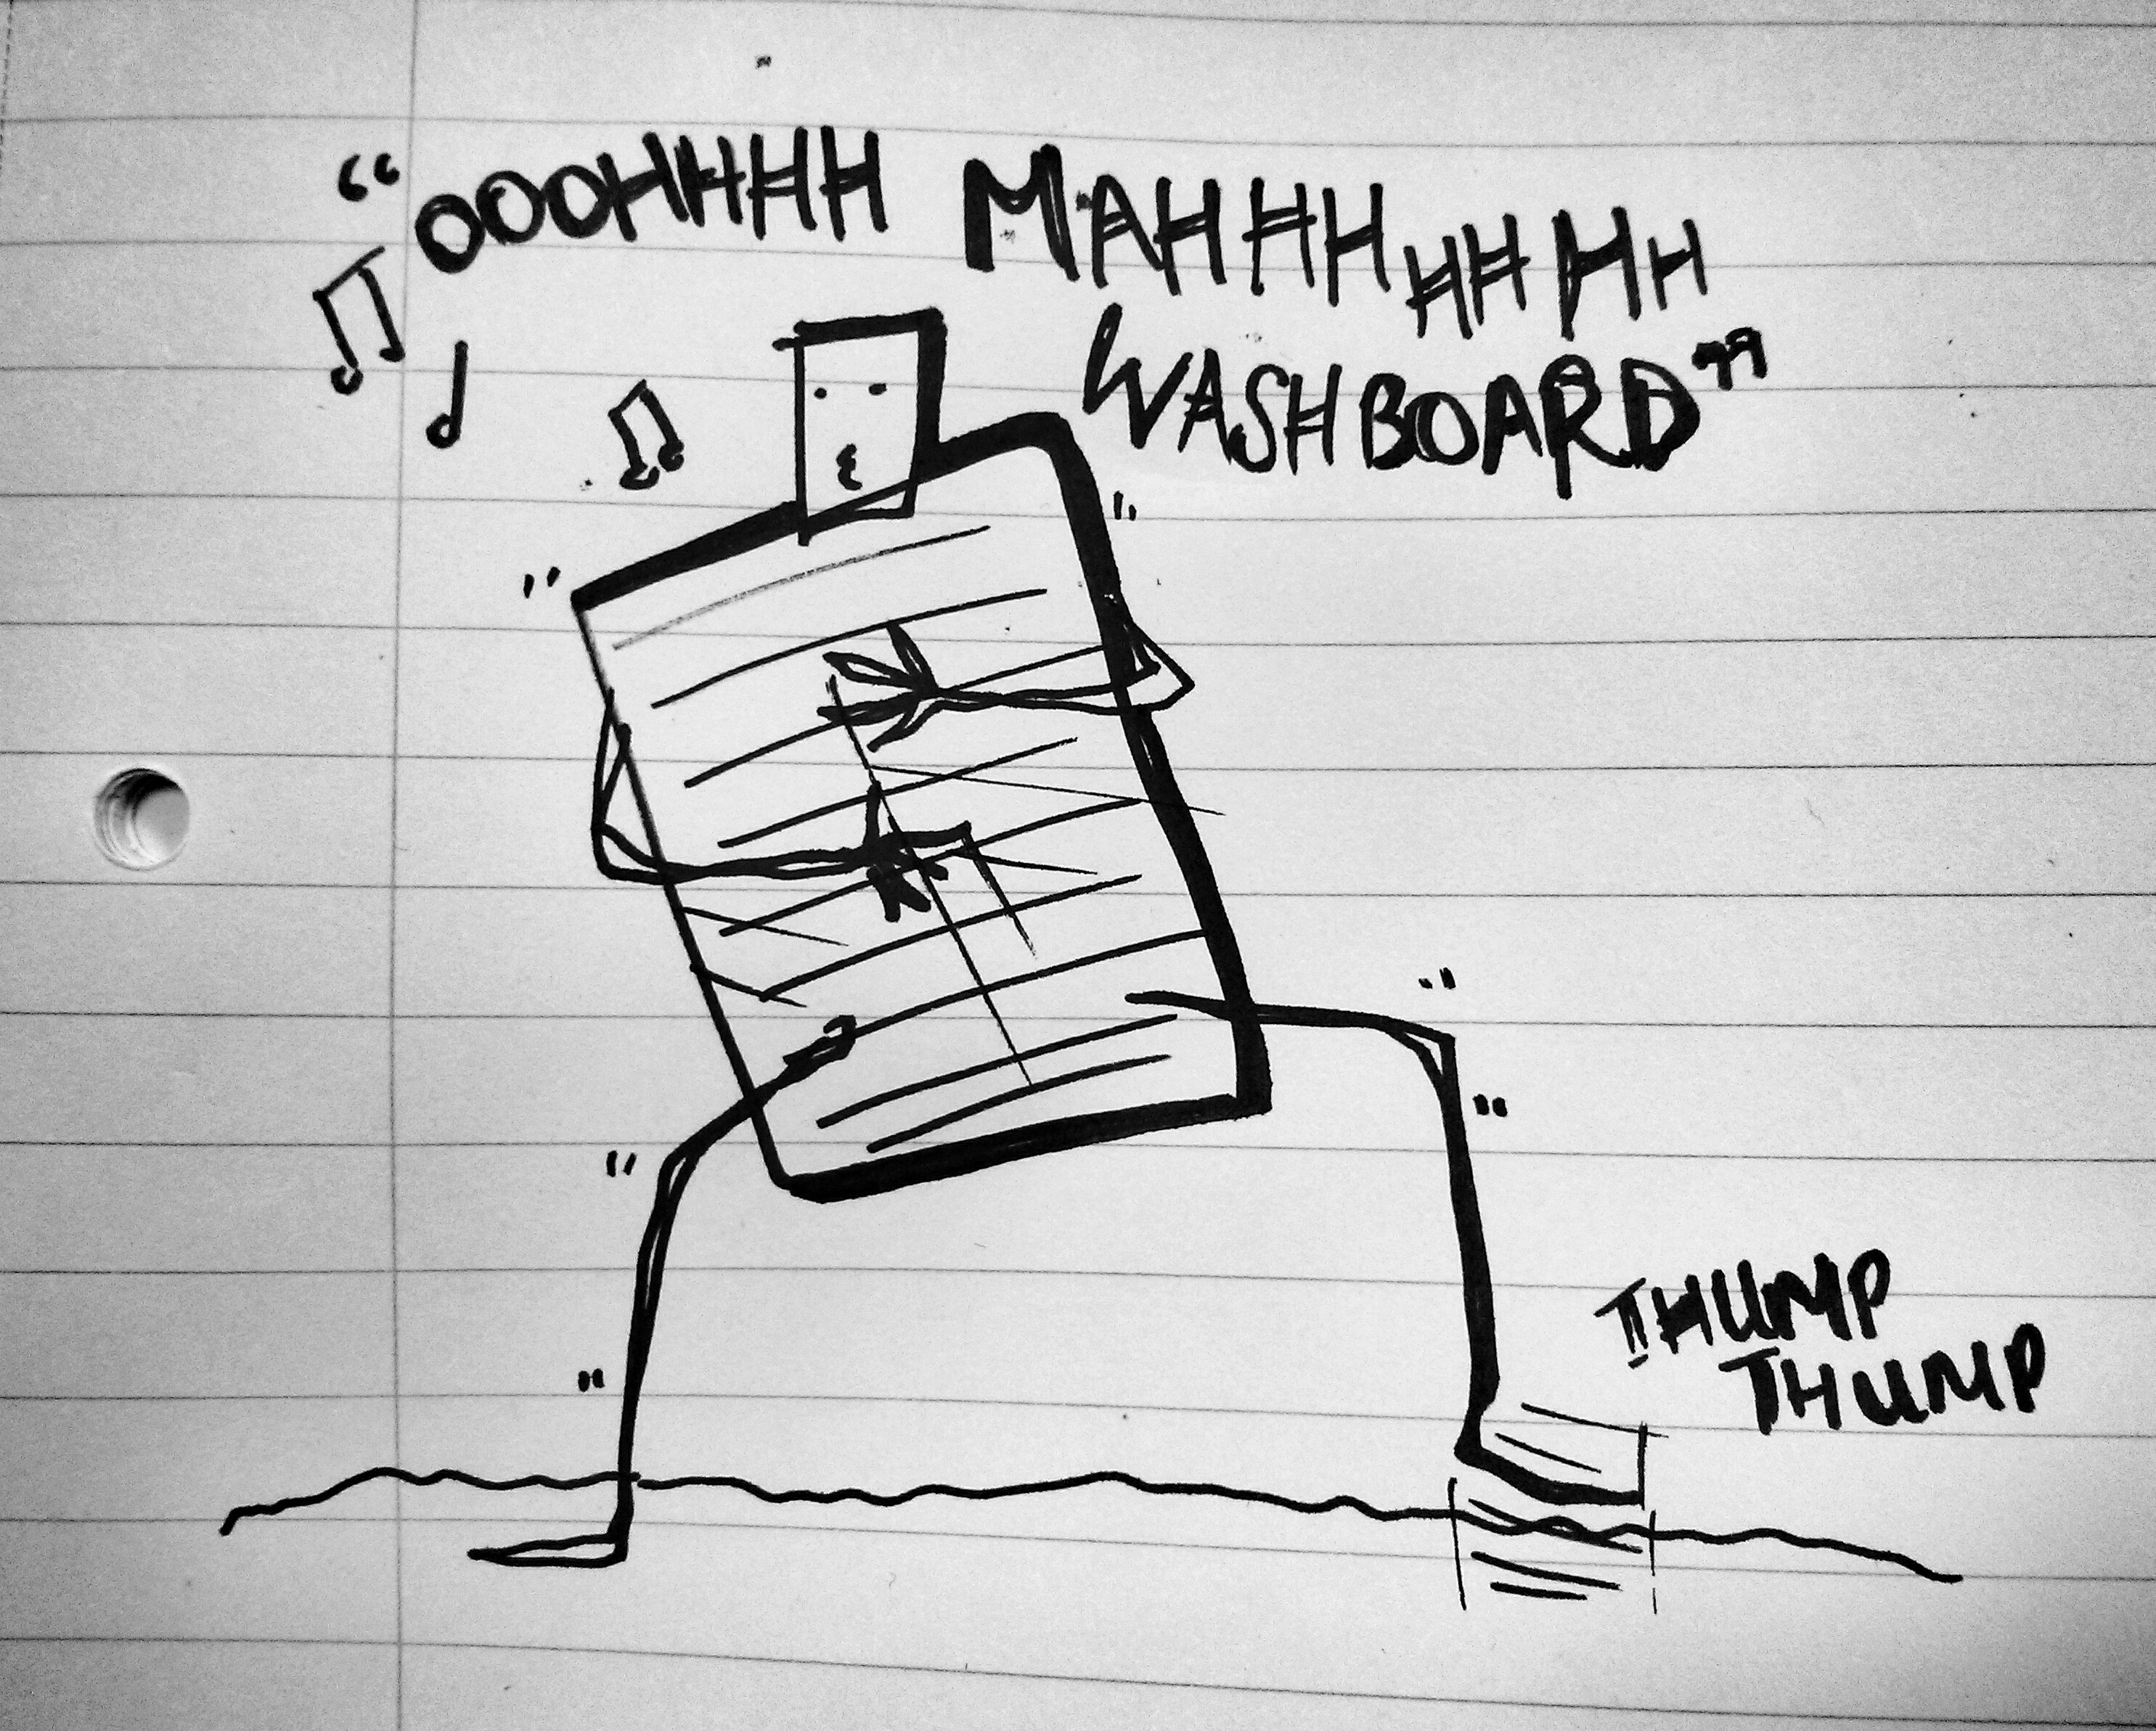 “OOOHHHH MAHHHHHHH
WASHBOARD”
THUMP
THUMP